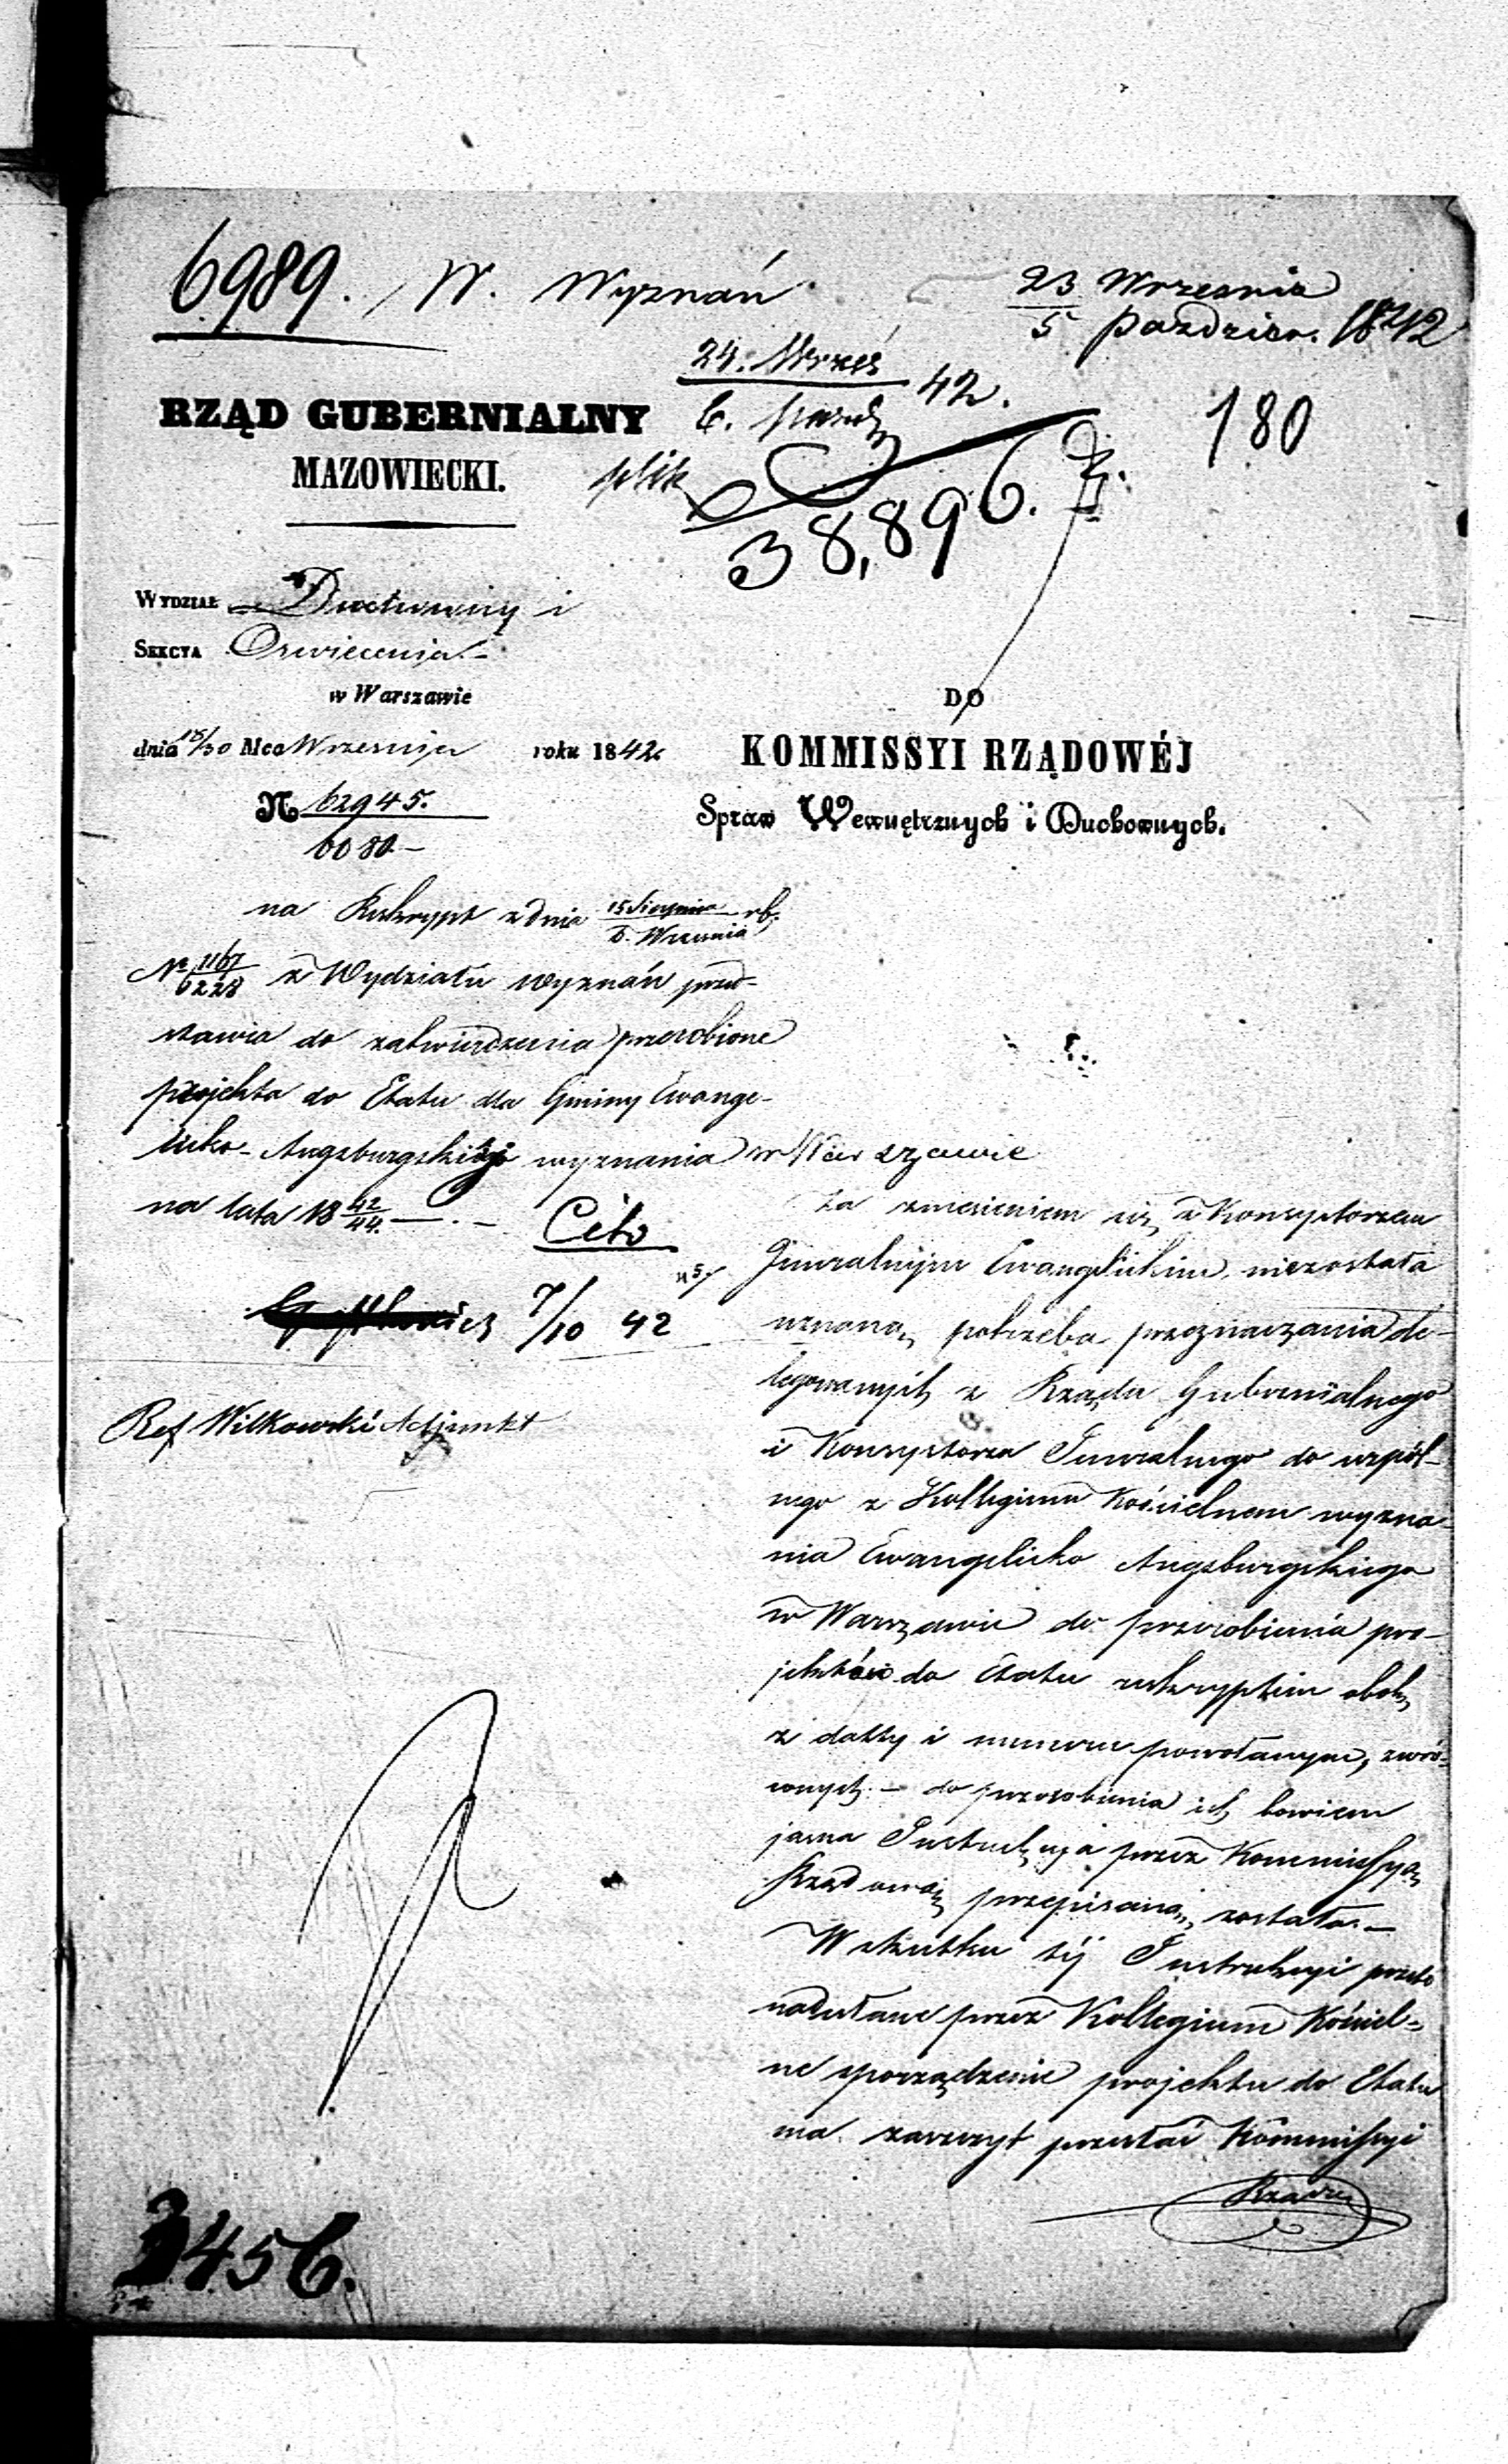 6989. W. Wyznań
23 Września
5 Paździer. 1842
24. Wrześ
6. Paźdz 42.
180
RZĄD GUBERNIALNY
MAZOWIECKI.
plik
38,896.
WYDZIAŁ Duchowny i
SEKCYA Oswiecenia.
w Warszawie
dnia 18/30 Mca Września roku 1842.
N 62945.
6080 –
DO
KOMMISSYI RZĄDOWÉJ
Spraw Wewnętrznych i Duchownych.
na Reskrypt z dnia 15 Sierpnia rb.
Września
Nr 1167
6228 z Wydziału wyznań przed-
stawia do zatwierdzenia przerobione
projekta do Etatu dla Gminy Ewange-
licko-Augsburgskiego wyznania w Warszawie
na lata 18 42/44. – . –
Cito
7/10 42
Ref Wilkowski Adjunkt
Za zniesieniem się z Konsystorzem
Generalnym Ewangelickim, niezostała
uznaną potrzeba przeznaczania de-
legowanych z Rządu Gubernialnego
i Konsystorza Generalnego do wspól-
nego z Kollegium Kościelnem wyzna-
nia Ewangelicko Augsburgskiego
w Warszawie do przerobienia pro-
jektów do Etatu reskryptem obok
z datty i numeru powołanym, zwró-
conych. – do przerobienia ich bowiem
jasna Instrukcyja przez Kommissyą
Rządową przepisaną została. –
W skutku téj Instrukcyi przeto
nadesłane przez Kollegium Kościel-
ne sporządzenie projektu do Etatu
ma zaszczyt przesłać Kommissyi
2456.